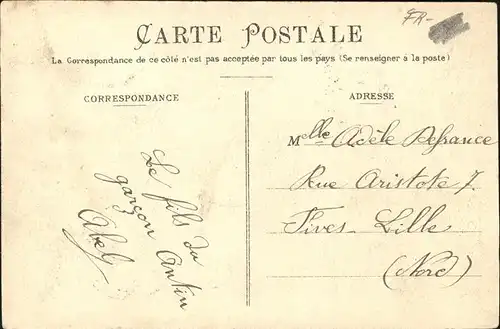 FR-
CARTE POSTALE
La Correspondance de ce côté n'est pas acceptée par tous les pays (Se renseigner à la poste)
CORRESPONDANCE
Le fils du
garçon Antin
Abel
ADRESSE
Melle Adèle Defrance
Rue Aristote 7
Fives-Lille
(Nord)